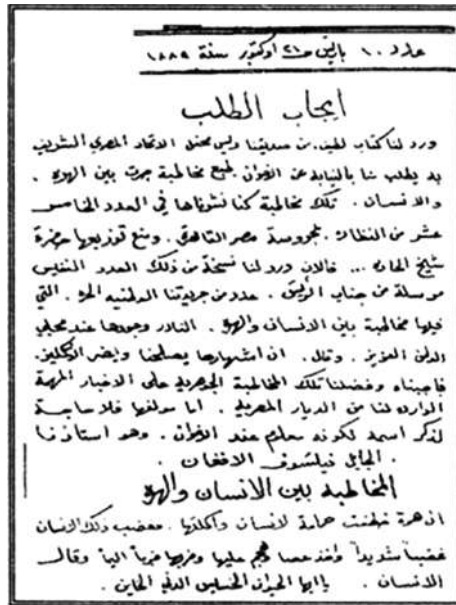 عدد ١٠ باريس ٢١ اوكتوبر سنة ١٨٨٩
ايجاب الطلب
ورد لنا كتاب لطيف من صديقنا رئيس محفل الاتحاد المصري الشريف
به يطلب منا بالنيابة عن الاخوان طبع مخاطبة جرت بين الهره
والانسان . تلك مخاطبة كنا نشرناها في العدد الخامس
عشر من النظارة بمحروسة مصر القاهرة . ومنع توزيعها حضرة
شيخ الحاره ... فالان ورد لنا نسخة من ذلك العدد النفيس
مرسلة من جناب الريس . عدد من جريدتنا الوطنيه الحره . التي
فيها مخاطبة بين الانسان والهره . النادر وجودها عند محبي
الوطن العزيز . وقال . ان اشهارها
فاجبناه وفضلنا تلك المخاطبة الجوهرية على الاخبار المهمة
الوارده لنا من الديار المصرية . اما مولفها فلا حاجة
لذكر اسمه لكونه معلوم عند الاخوان . وهو استاذنا
. الجليل فيلسوف الافغان .
المخاطبة بين الانسان والهره
ان هرة خطفت حمامة لانسان واكلتها . فغضب ذلك الانسان
غضباً شديداً واخذ عصا وهجم عليها وضربها ضرباً اليما وقال
الانسان . يا ايها الحيوان الخسيس الدني الخاين .